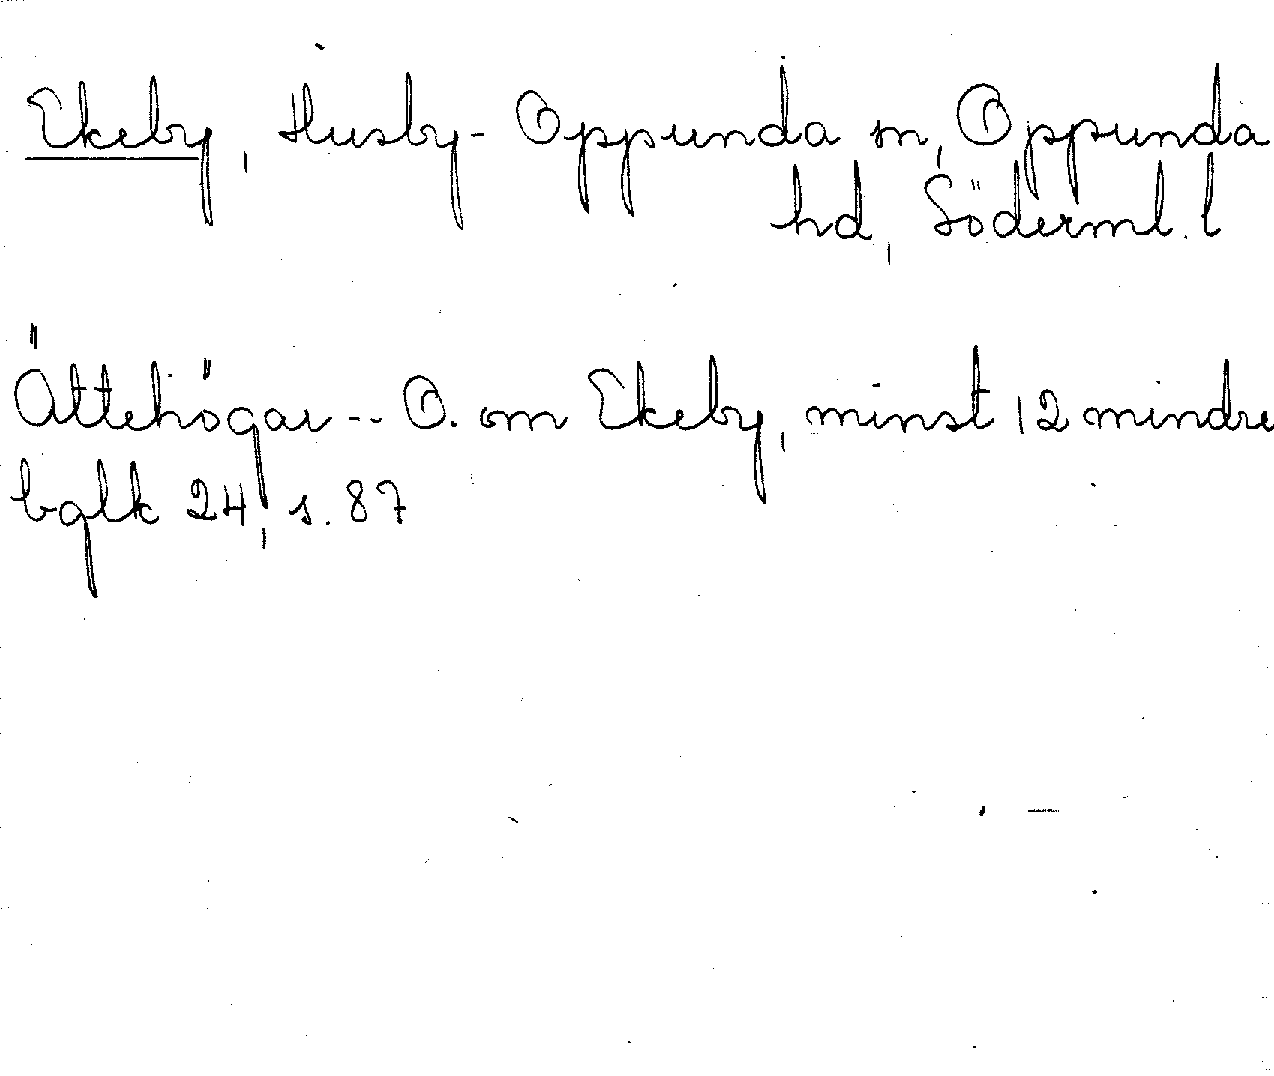 Ekeby, Husby-Oppunda sn, Oppunda
hd, Söderml. l
Ättehögar -- O. om Ekeby, minst 12 mindre
bglk 24, s. 87